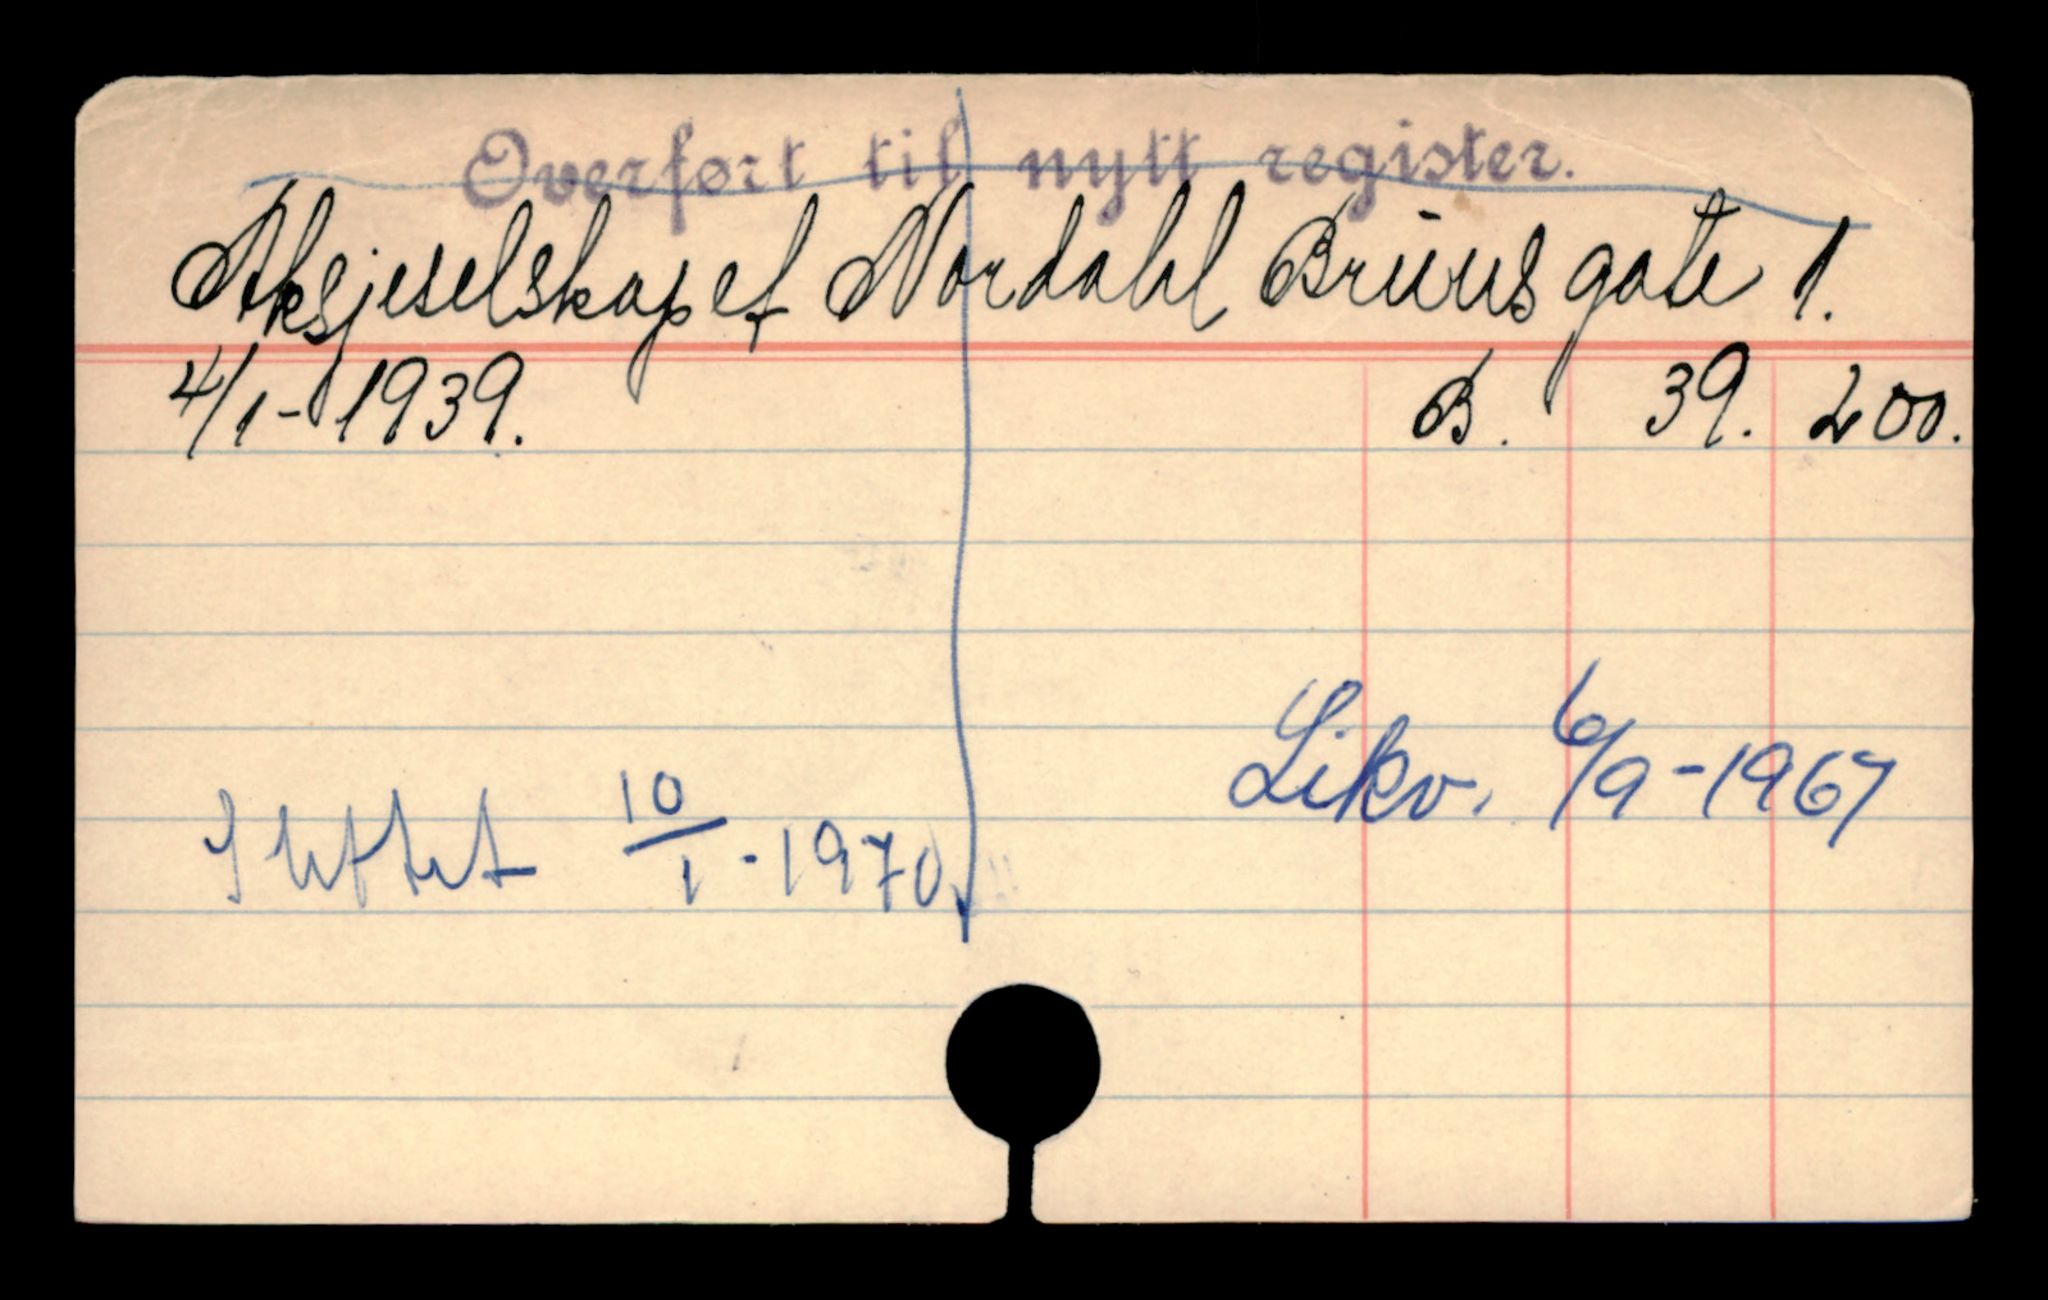 Overført til nytt register.
Aksjeselskapet Nordahl Brüns gate 1.
4/1-1939. B. 39. 200.
Likv. 6/9-1967
Slettet 10/1-1970